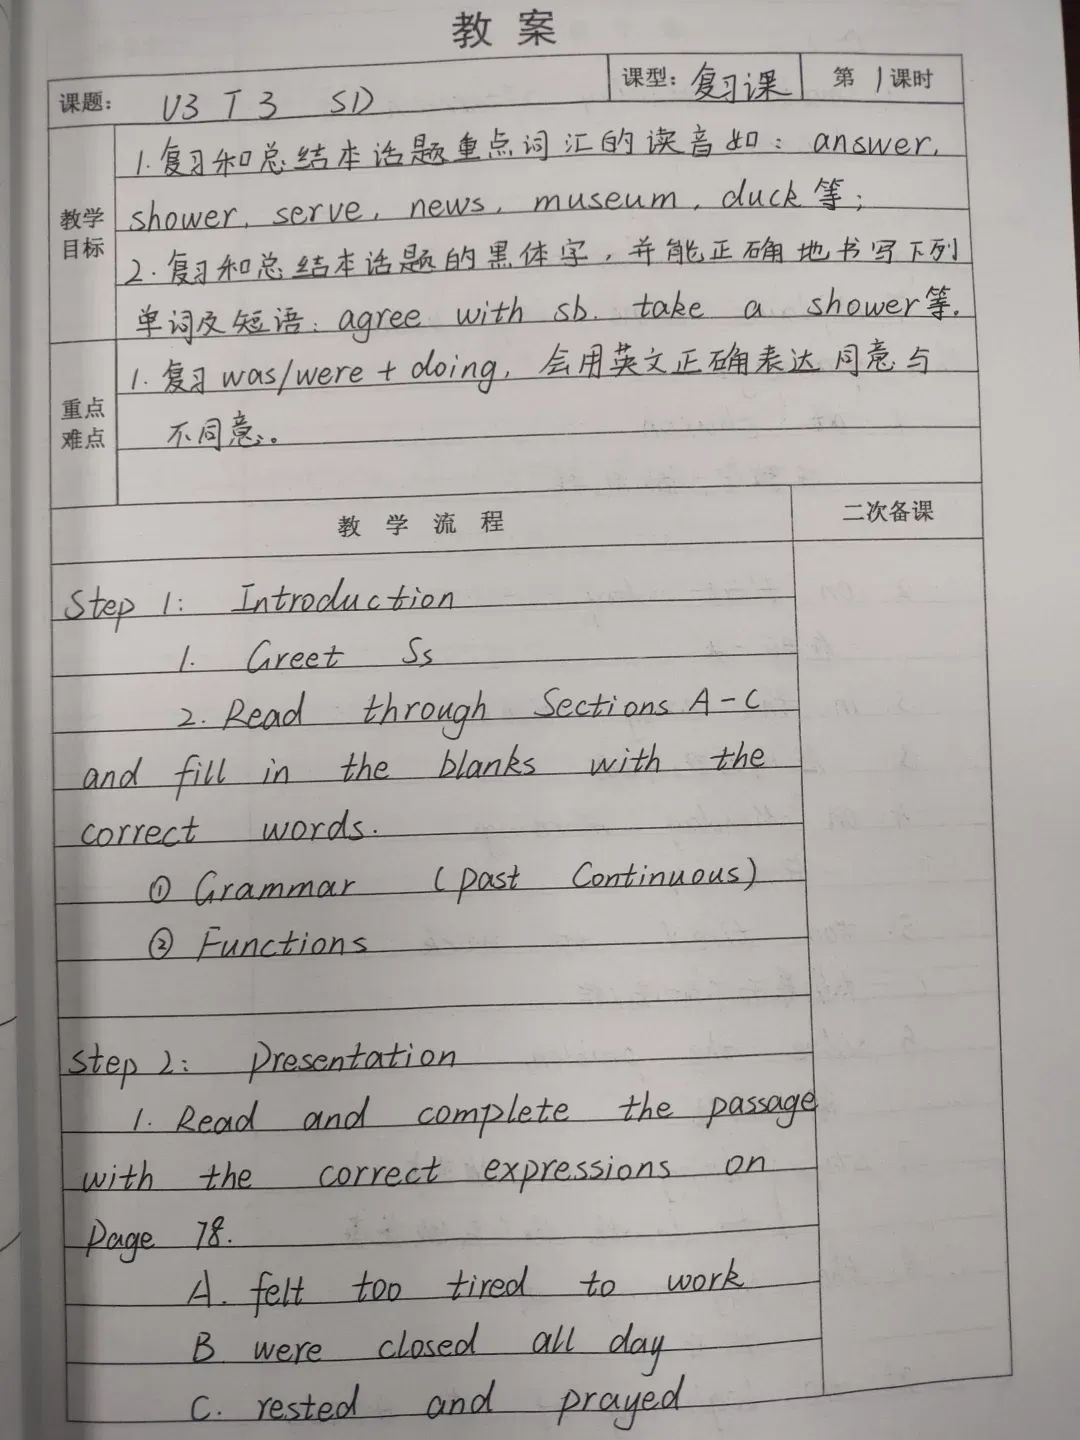 教 案
课题： U3 T3 SD 课型：复习课 第 1 课时
教学目标
1.复习和总结本话题重点词汇的读音如：answer,
shower, serve, news, museum, duck等；
2.复习和总结本话题的黑体字，并能正确地书写下列
单词及短语：agree with sb. take a shower等.
重点难点
1.复习was/were + doing, 会用英文正确表达同意与
不同意。
教 学 流 程 二次备课
Step 1: Introduction
1. Greet Ss
2. Read through Sections A-C
and fill in the blanks with the
correct words.
① Grammar (past Continuous)
② Functions
Step 2: Presentation
1. Read and complete the passage
with the correct expressions on
Page 78.
A. felt too tired to work
B. were closed all day
C. rested and prayed